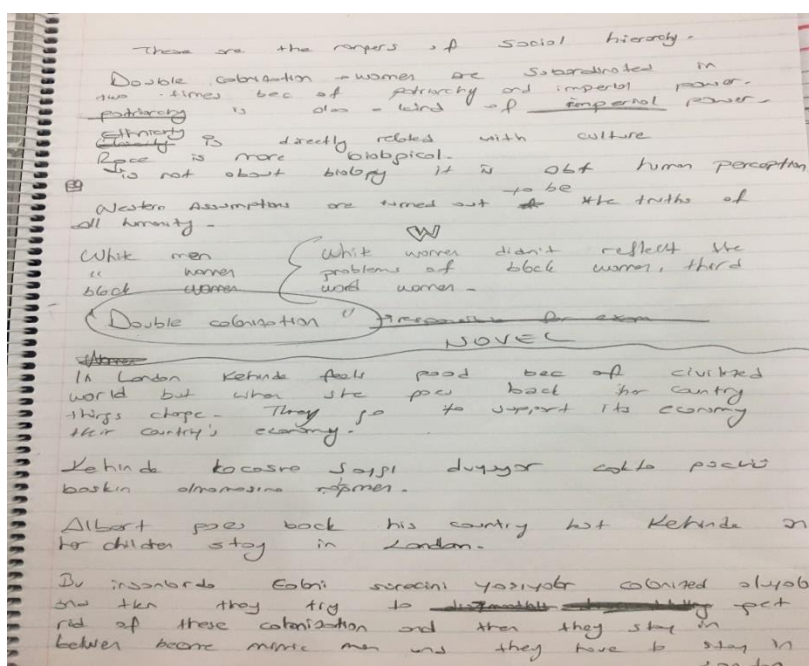 These are the rampers of social hierarchy.
Double colonisation → women are subordinated in
two times bec of patriarchy and imperial power.
patriarchy is also a kind of imperial power.
Ethnicity is directly related with culture
Race is more biological.
is not about biology it is abt human perception
Western Assumptions are turned out to be the truths of
all humanity.
W
White men
" women
black women
White women didn't reflect the
problems of black women, third
word women.
"Double colonisation"
NOVEL
In London Kehinde feels good bec of civilized
world but when she goes back her country
things change. They go to support its economy
their country's economy.
Kehinde kocasına saygı duyuyor çokta
baskın olmamasına rağmen.
Albert goes back his country but Kehinde an
her children stay in London.
Bu insanlarda sürecini yaşıyolar colonized oluyolar
and then they try to get
rid of these colonisation and then they stay in
between become mimic man and they have to stay in